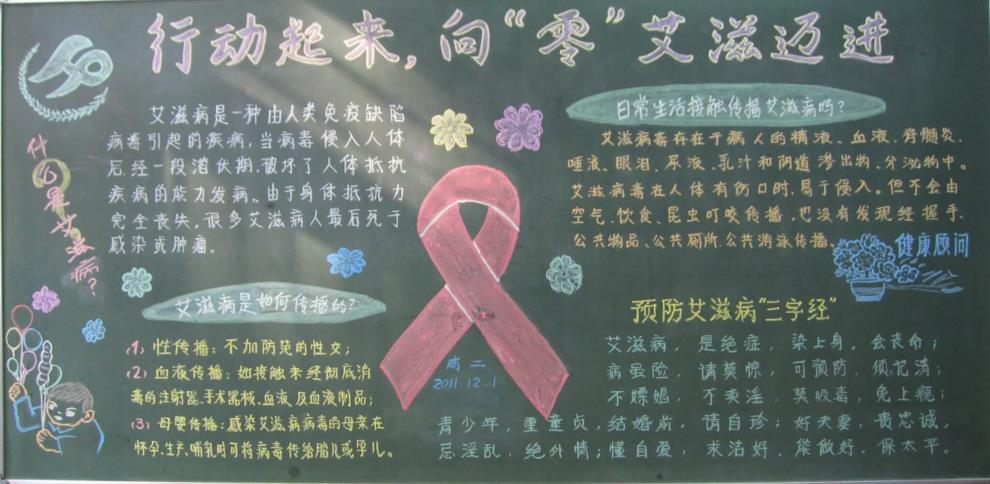 行动起来，向“零”艾滋迈进
什么是艾滋病？
艾滋病是一种由人类免疫缺陷
病毒引起的疾病，当病毒侵入人体
后，经一段潜伏期，破坏了人体抵抗
疾病的能力发病。由于身体抵抗力
完全丧失，很多艾滋病人最后死于
感染或肿瘤。
艾滋病是如何传播的？
（1）性传播：不加防范的性交；
（2）血液传播：如接触未经彻底消
毒的注射器、手术器械、血液及血液制品；
（3）母婴传播：感染艾滋病病毒的母亲在
怀孕、生产、哺乳时可将病毒传给胎儿或孕儿。
成二
2011.12.1
日常生活接触传播艾滋病吗？
艾滋病毒存在于病人的精液、血液、脊髓炎、
唾液、眼泪、尿液、乳汁和阴道渗出物、分泌物中。
艾滋病毒在人体有伤口时，易于侵入。但不会由
空气、饮食、昆虫叮咬传播，也没有发现经握手、
公共物品、公共厕所、公共游泳传播。
健康顾问
预防艾滋病“三字经”
艾滋病，是绝症，染上身，会丧命；
病虽险，请莫惊，可预防，须记清；
不嫖娼，不卖淫，莫吸毒，免上瘾；
青少年，重童贞，结婚前，请自珍；好夫妻，贵忠诚，
忌淫乱，绝外情；懂自爱，求洁好，能做好，保太平。